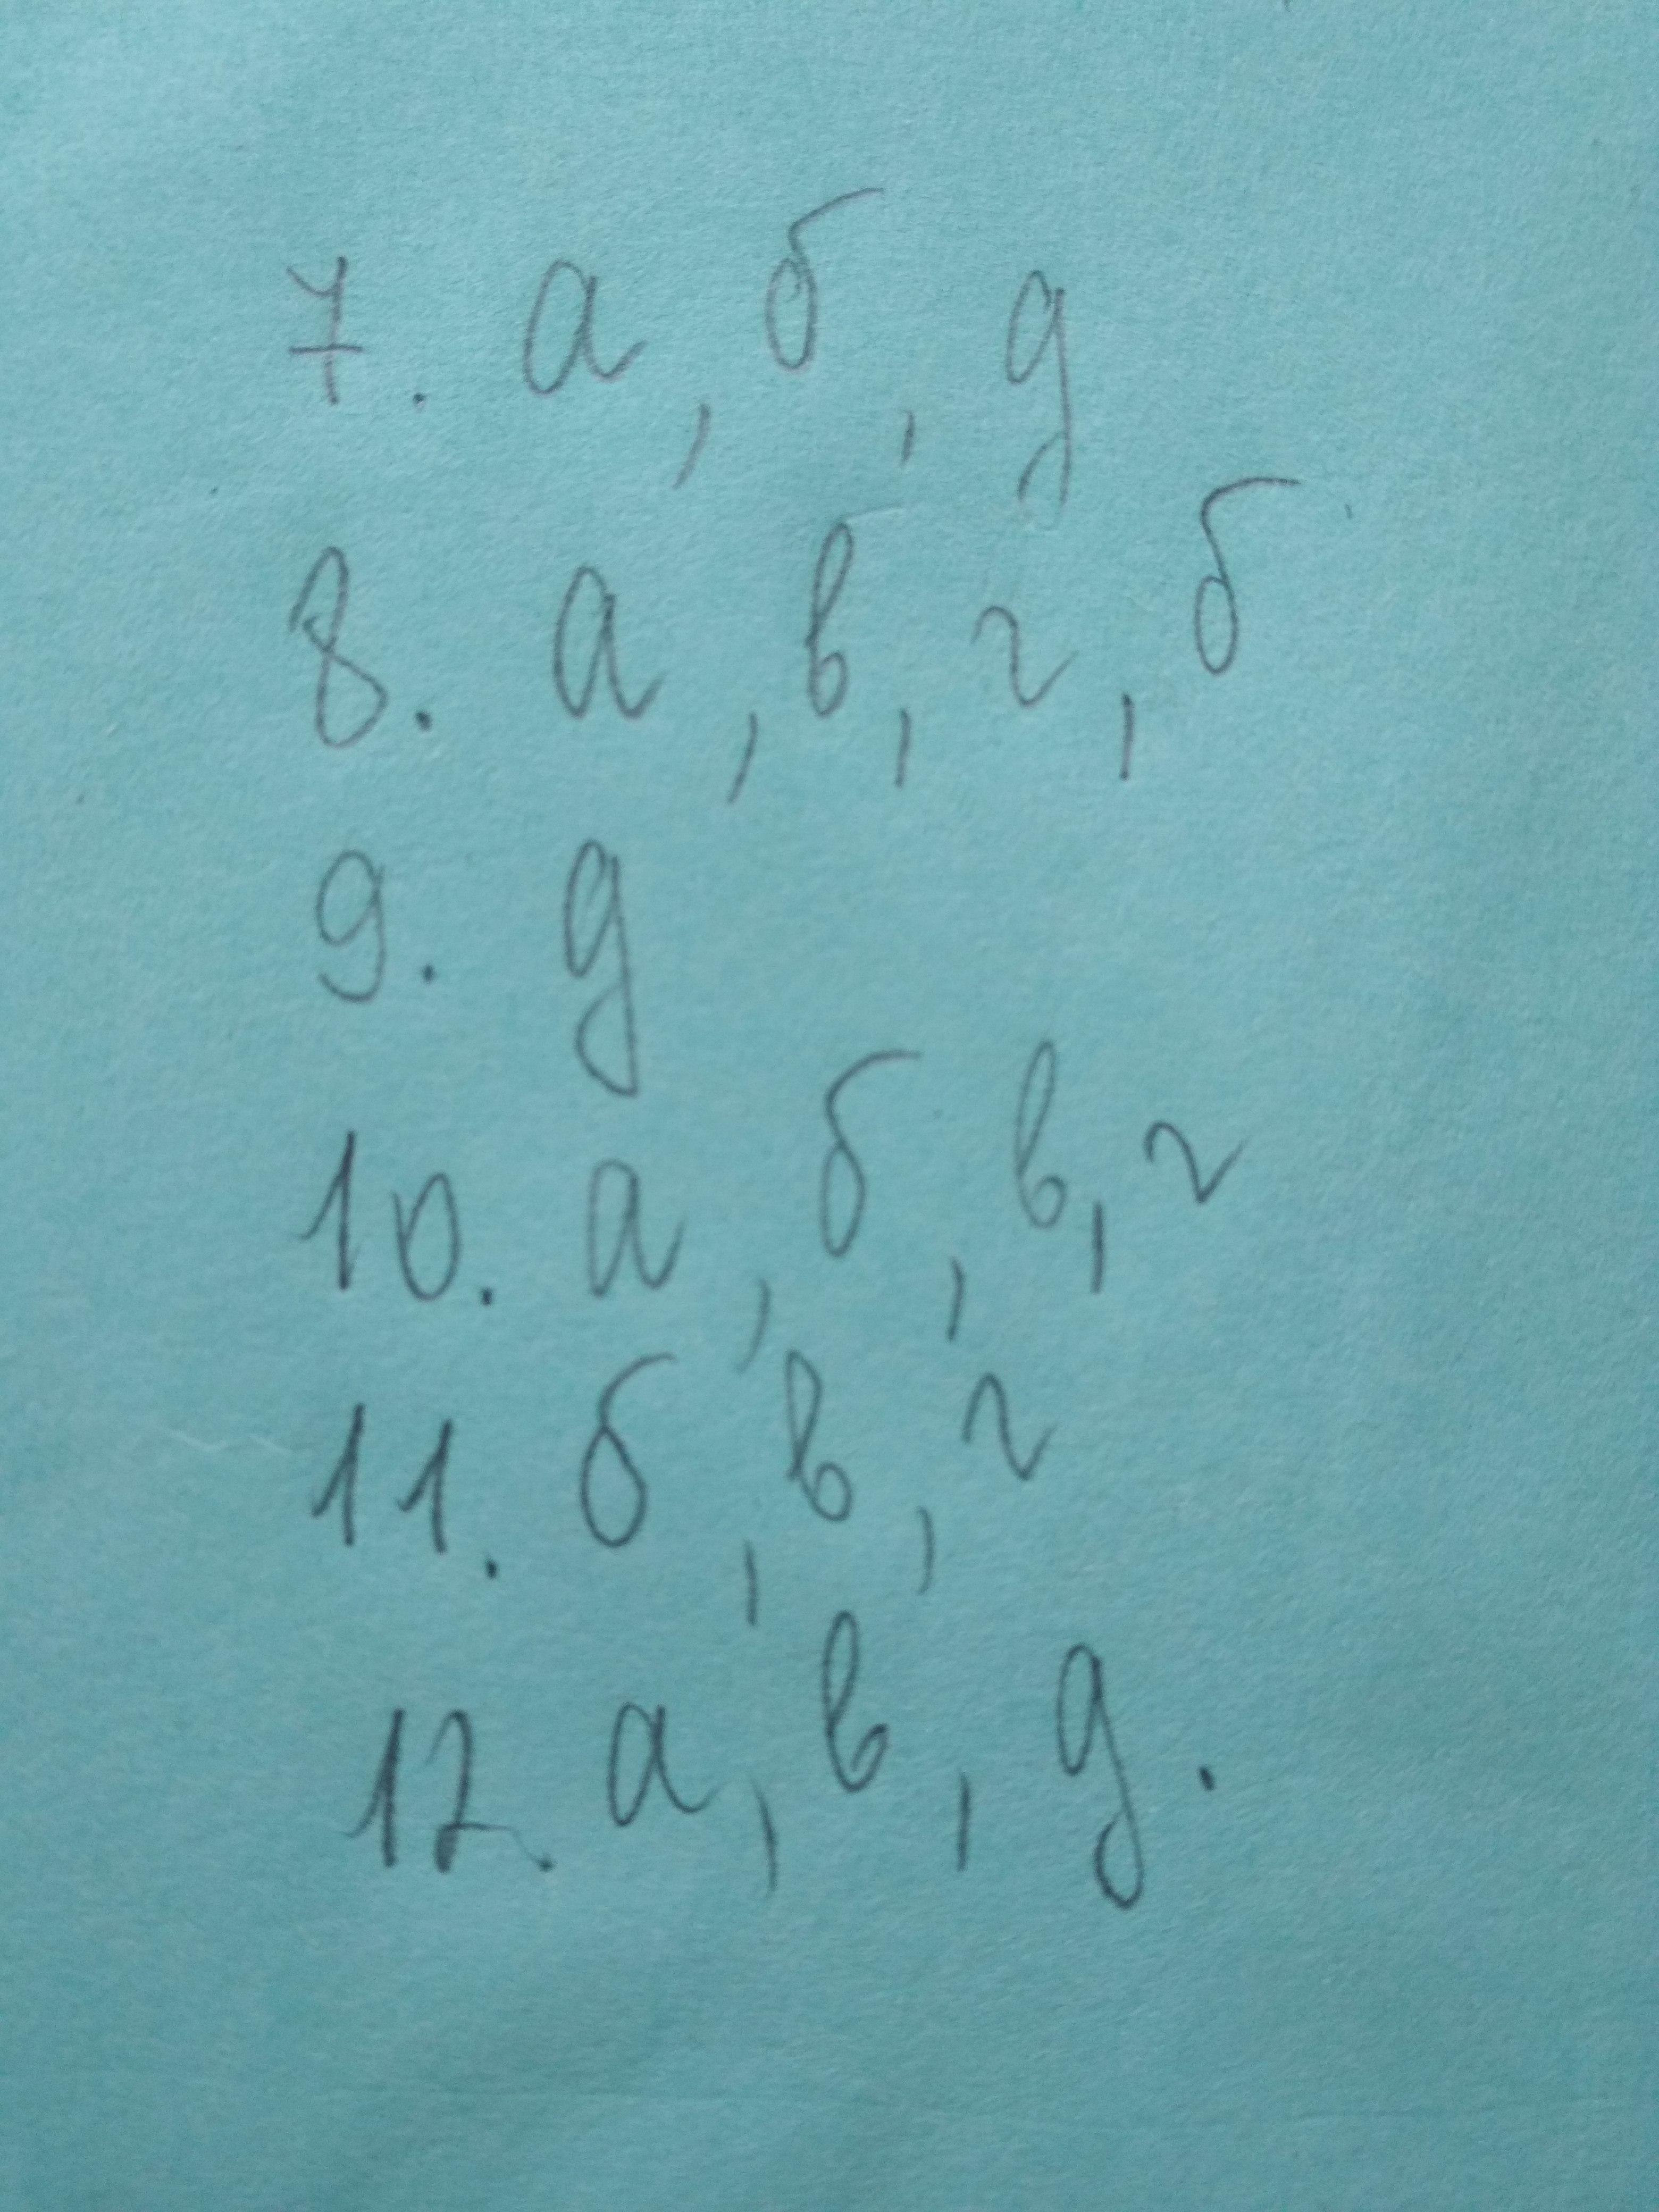 7. а, б, д
8. а, в, г, б
9. д
10. а, б, в, г
11. б, в, г
12. а, в, д.